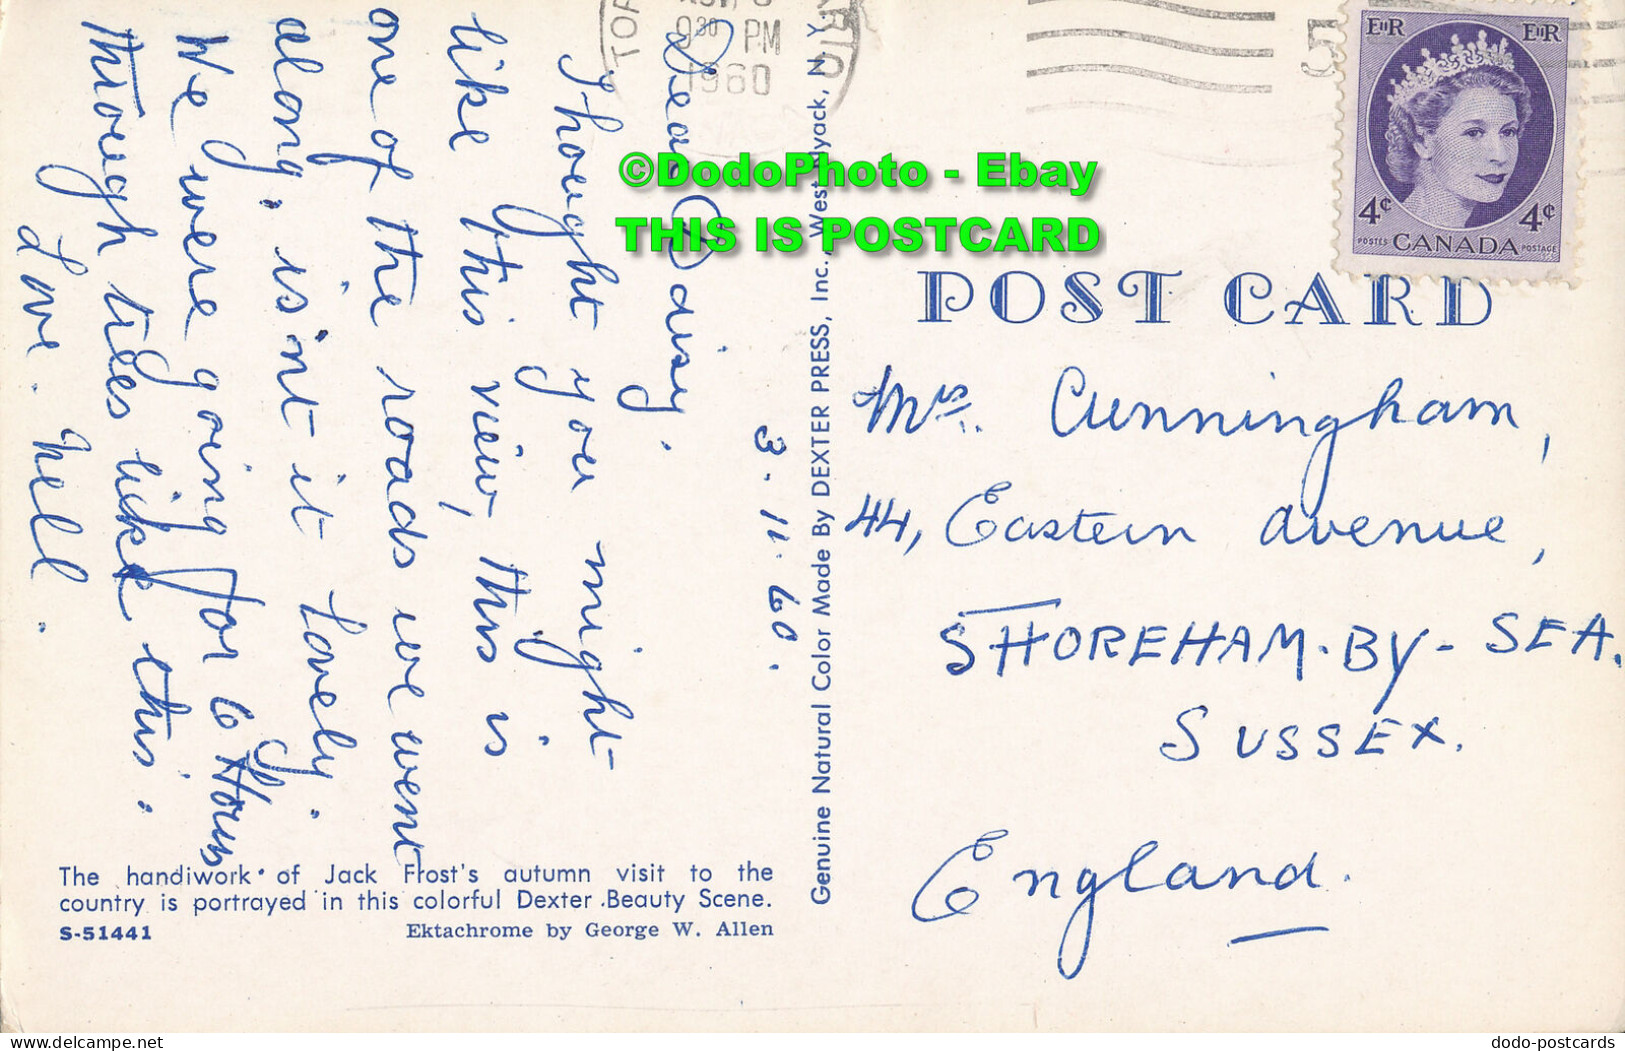 3.11.60.
Dear Daisy.
I hought you might
like this view, this is
one of the roads we went
along. isint it lovely.
We were going for 6 Hours
through trees like this.
Love. Nell.
The handiwork of Jack Frost's autumn visit to the
country is portrayed in this colorful Dexter Beauty Scene.
S-51441
Ektachrome by George W. Allen
Genuine Natural Color Made By DEXTER PRESS, Inc. West Nyack, N. Y.
9 30 PM
1960
5
EIIR EIIR
4¢ 4¢
POSTES CANADA POSTAGE
©DodoPhoto - Ebay
THIS IS POSTCARD
POST CARD
Mrs. Cunningham,
44, Eastern avenue,
SHOREHAM-BY-SEA.
SUSSEX.
England.
www.delcampe.net
dodo-postcards